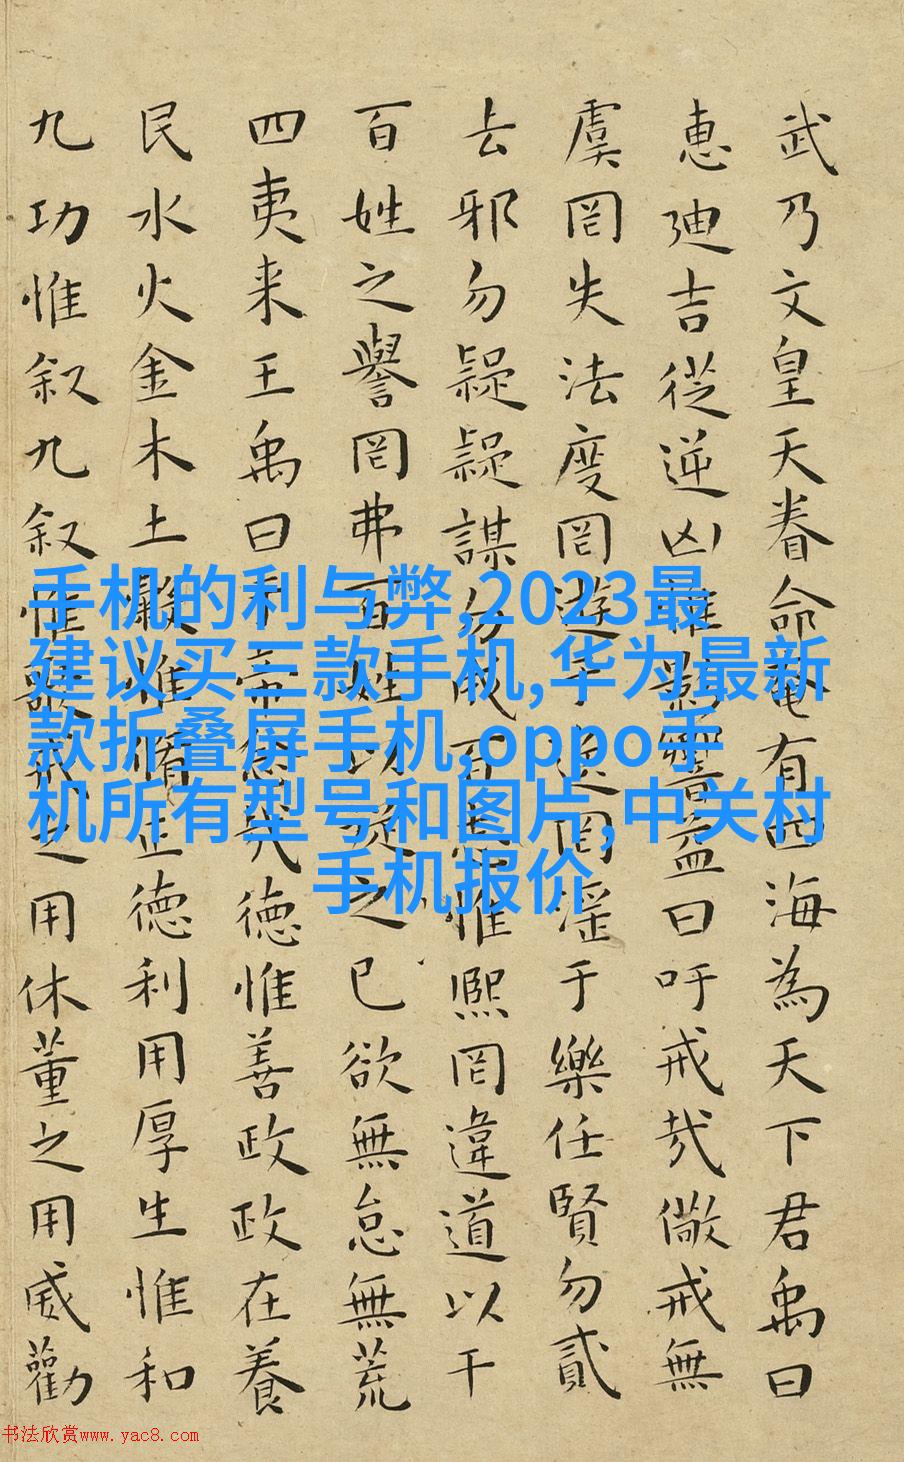 武乃文皇天眷命奄有四海為天下君禹曰
惠廸吉從逆凶惟影響益曰吁戒哉儆戒無
虞罔失法度罔遊于逸罔淫于樂任賢勿貳
去邪勿疑疑謀勿成百志惟熙罔違道以干
百姓之譽罔弗百姓以從之已欲無怠無荒
四夷来王禹曰于帝念哉德惟善政政在養
民水火金木土穀惟脩正德利用厚生惟和
九功惟叙九叙惟歌戒之用休董之用威勸
手机的利与弊,2023最
建议买三款手机,华为最新
款折叠屏手机,oppo手
机所有型号和图片,中关村
手机报价
书法欣赏www.yac8.com